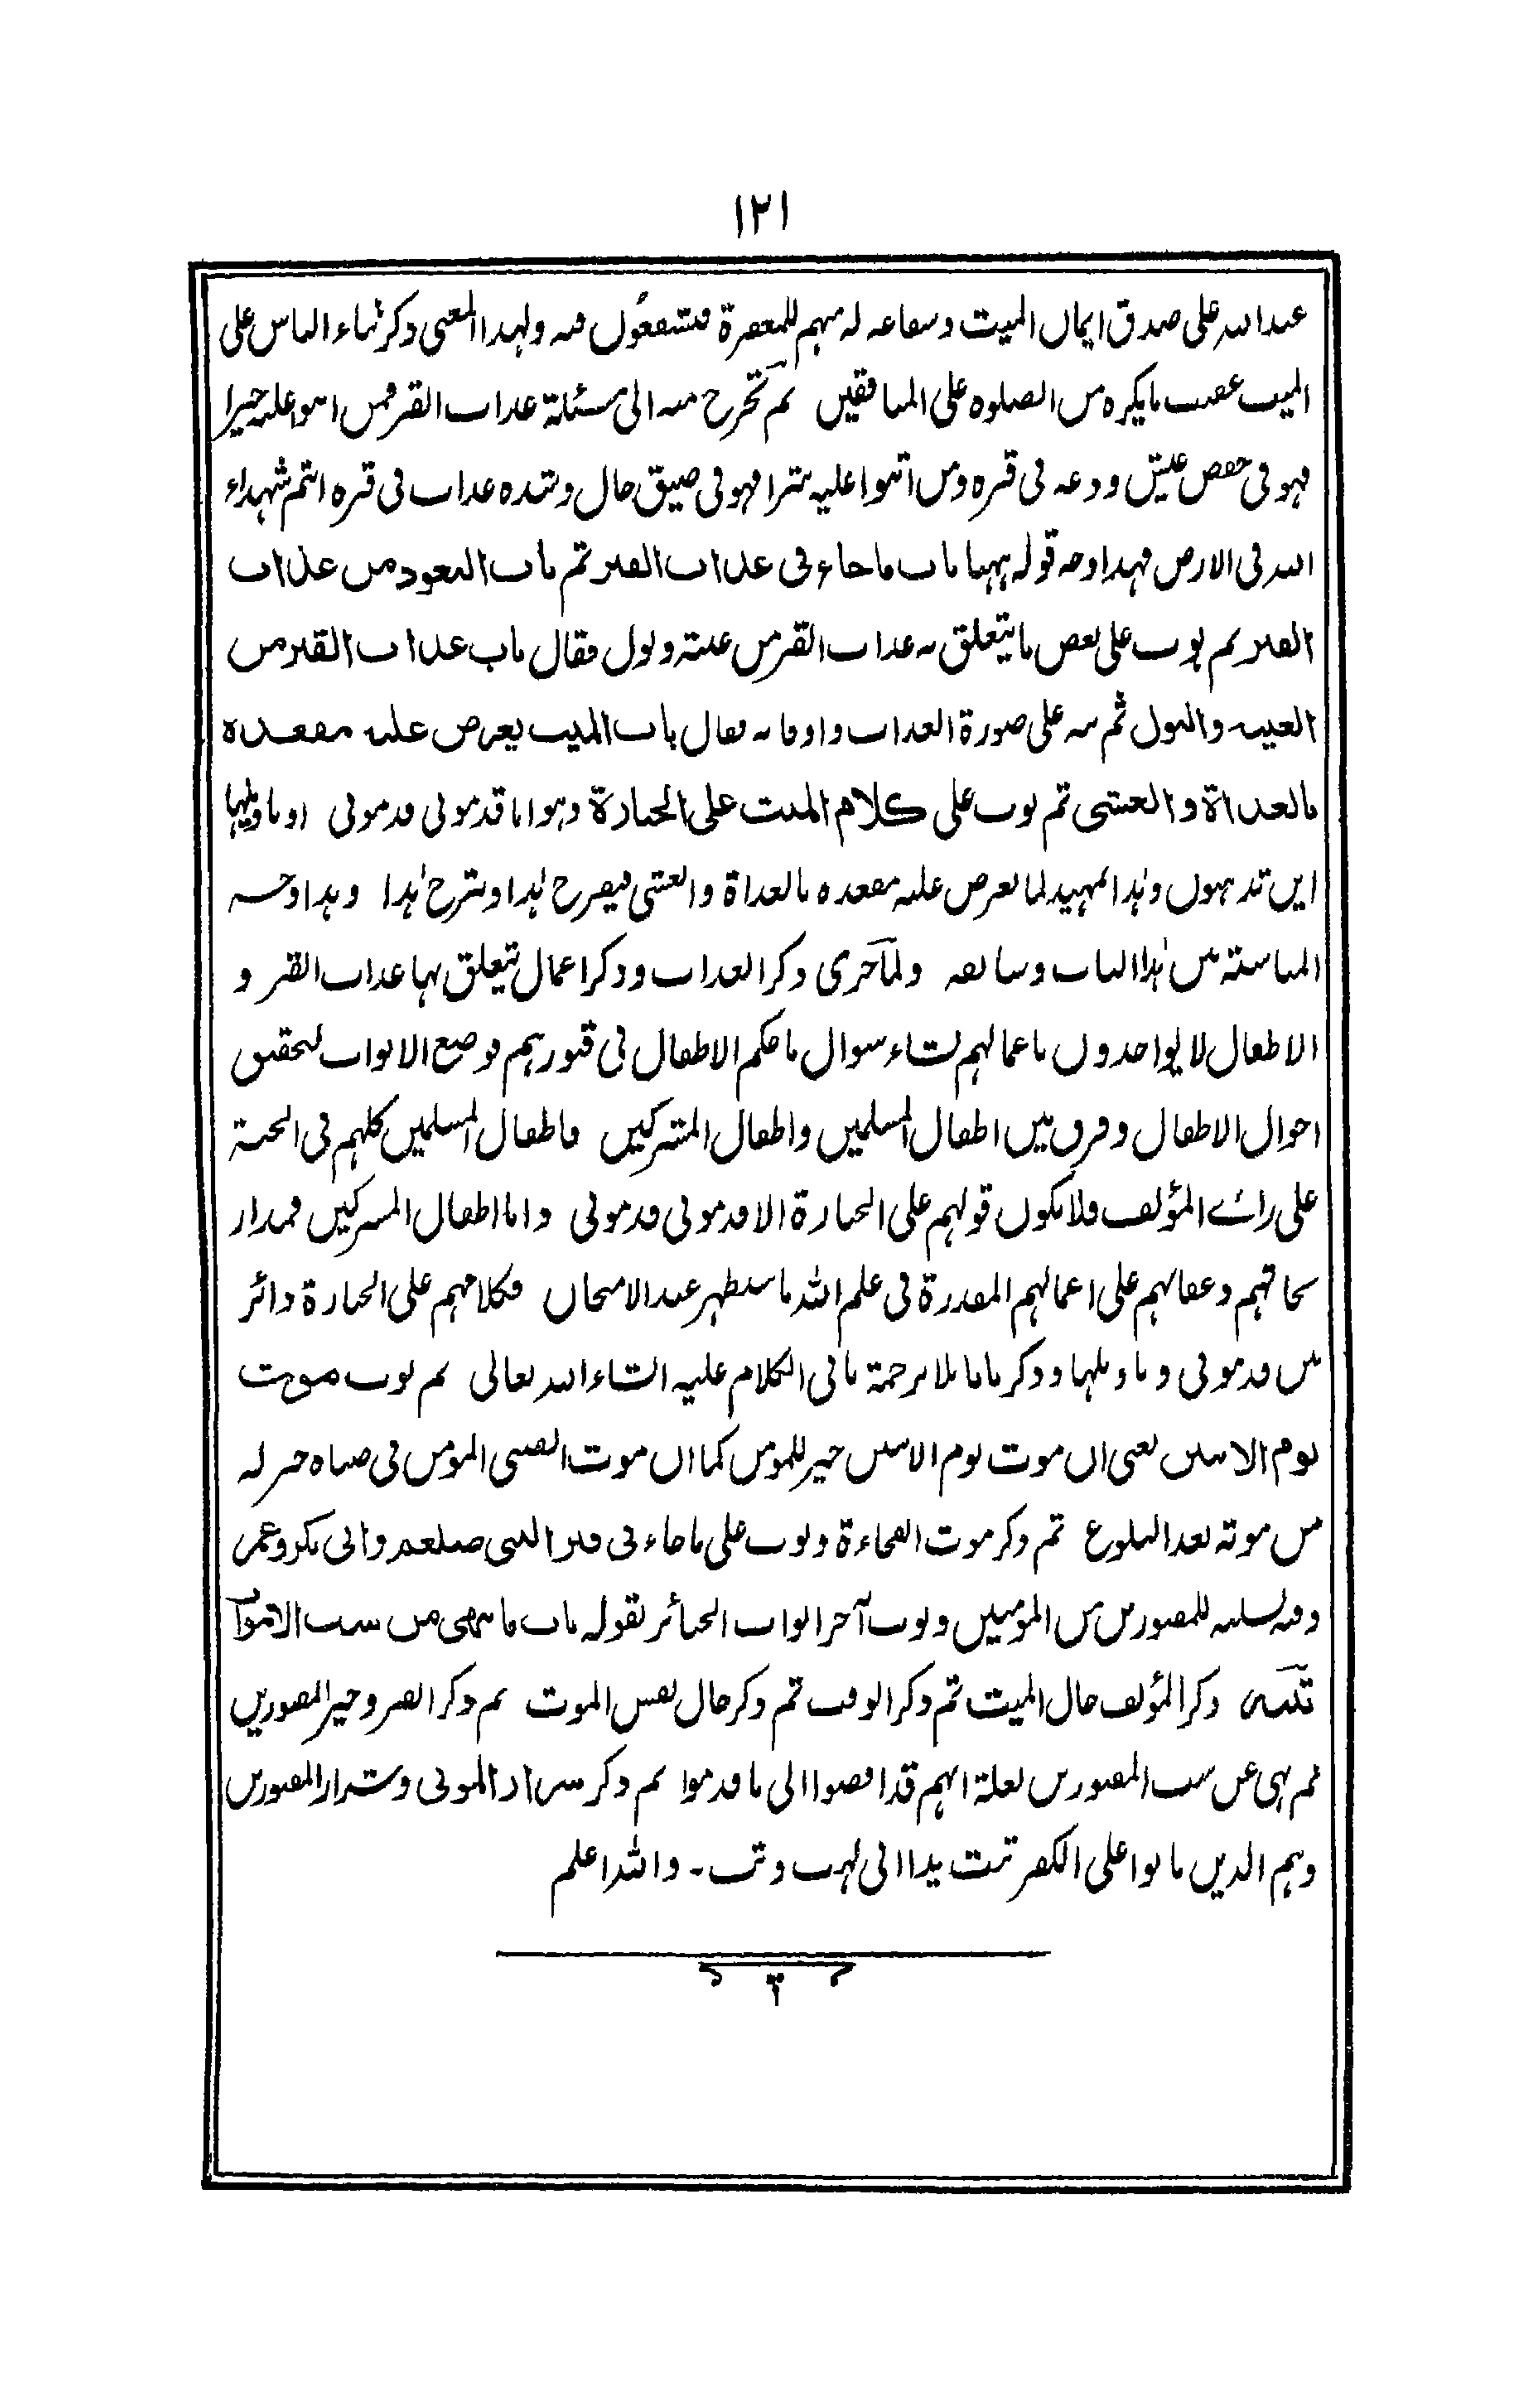 ١٢١
عند الله على صدق ايمان الميت وشفاعه له منهم للمغفرة فتشفعون فيه ولهذا المعنى ذكر ثناء الناس على
الميت عقيب ما يكره من الصلوه على المنافقين ثم تخرج منه الى مسئلة عذاب القبر فمن اثنوا عليه خيرا
فهو فى خفض عيش ودعه فى قبره ومن اثنوا عليه شرا فهو فى ضيق حال وشده عذاب فى قبره انتم شهداء
الله فى الارض فهذا وجه قوله ههنا باب ما جاء فى عذاب القبر ثم باب التعوذ من عذاب
القبر ثم بوب على بعض ما يتعلق به عذاب القبر من غيبته وبول فقال باب عذاب القبر من
الغيبه والبول ثم نبه على صورة العذاب واوقاته فقال باب الميت يعرض عليه مقعده
بالغداة والعشى ثم بوب على كلام الميت على الجنازة وهو اما قدمونى قدمونى او يا ويلها
اين تذهبون وهذا تمهيد لما يعرض عليه مقعده بالغداة والعشى فيصرح هذا وشرح هذا وهذا وجه
المناسبته من هذا الباب وسابقه ولما جرى ذكر العذاب وذكر اعمال يتعلق بها عذاب القبر و
الاطفال لا يواخذون باعمالهم نشاء سوال ما حكم الاطفال فى قبورهم فوضع الابواب لتحقيق
احوال الاطفال وفرق بين اطفال المسلمين واطفال المشركين فاطفال المسلمين كلهم فى الجنة
على رائے المؤلف فلا يكون قولهم على الجنازة الا قدمونى قدمونى واما اطفال المشركين فمدار
نجاتهم وعقابهم على اعمالهم المقدرة فى علم الله ما سيظهر عند الامتحان فكلامهم على الجنازة دائر
بين قدمونى و يا ويلها وذكر بابا بلا ترجمة ياتى الكلام عليه انشاء الله تعالى ثم بوب موت
يوم الاثنين يعنى ان موت يوم الاثنين خير للمومن كما ان موت الصبى المومن فى صباه خير له
من موته بعد البلوغ ثم ذكر موت الفجاءة وبوب على ما جاء فى قبر النبى صلعم وابى بكر وعمر
وفيه تسليه للمقبورين من المومنين وبوب آخر ابواب الجنائز بقوله باب ما ينهى من سب الاموات
تنبيه ذكر المؤلف حال الميت ثم ذكر الوقت ثم ذكر حال نفس الموت ثم ذكر القبر وخير المقبورين
ثم نهى عن سب المقبورين لعلة انهم قد افضوا الى ما قدموا ثم ذكر شرار الموتى وشرار المقبورين
وهم الذين ماتوا على الكفر تبت يدا ابى لهب وتب۔ والله اعلم